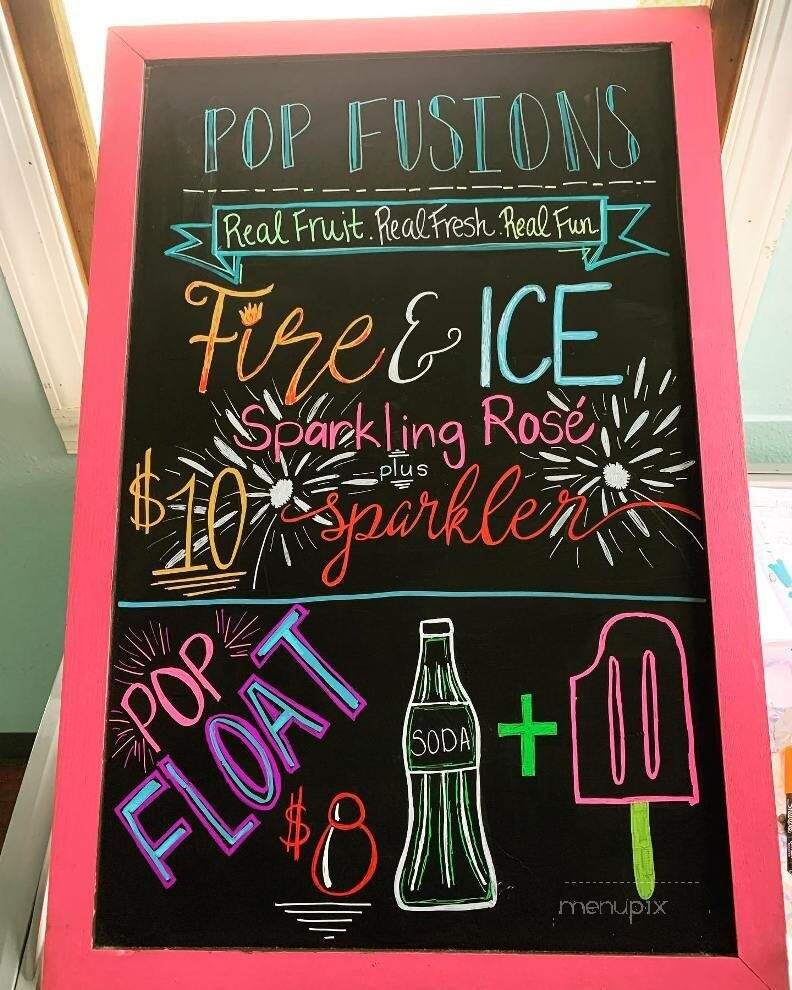 POP FUSIONS
Real Fruit. Real Fresh. Real Fun.
Fire & ICE
Sparkling Rosé
plus
$10 sparkler
POP
FLOAT
$8
SODA
+
menupix